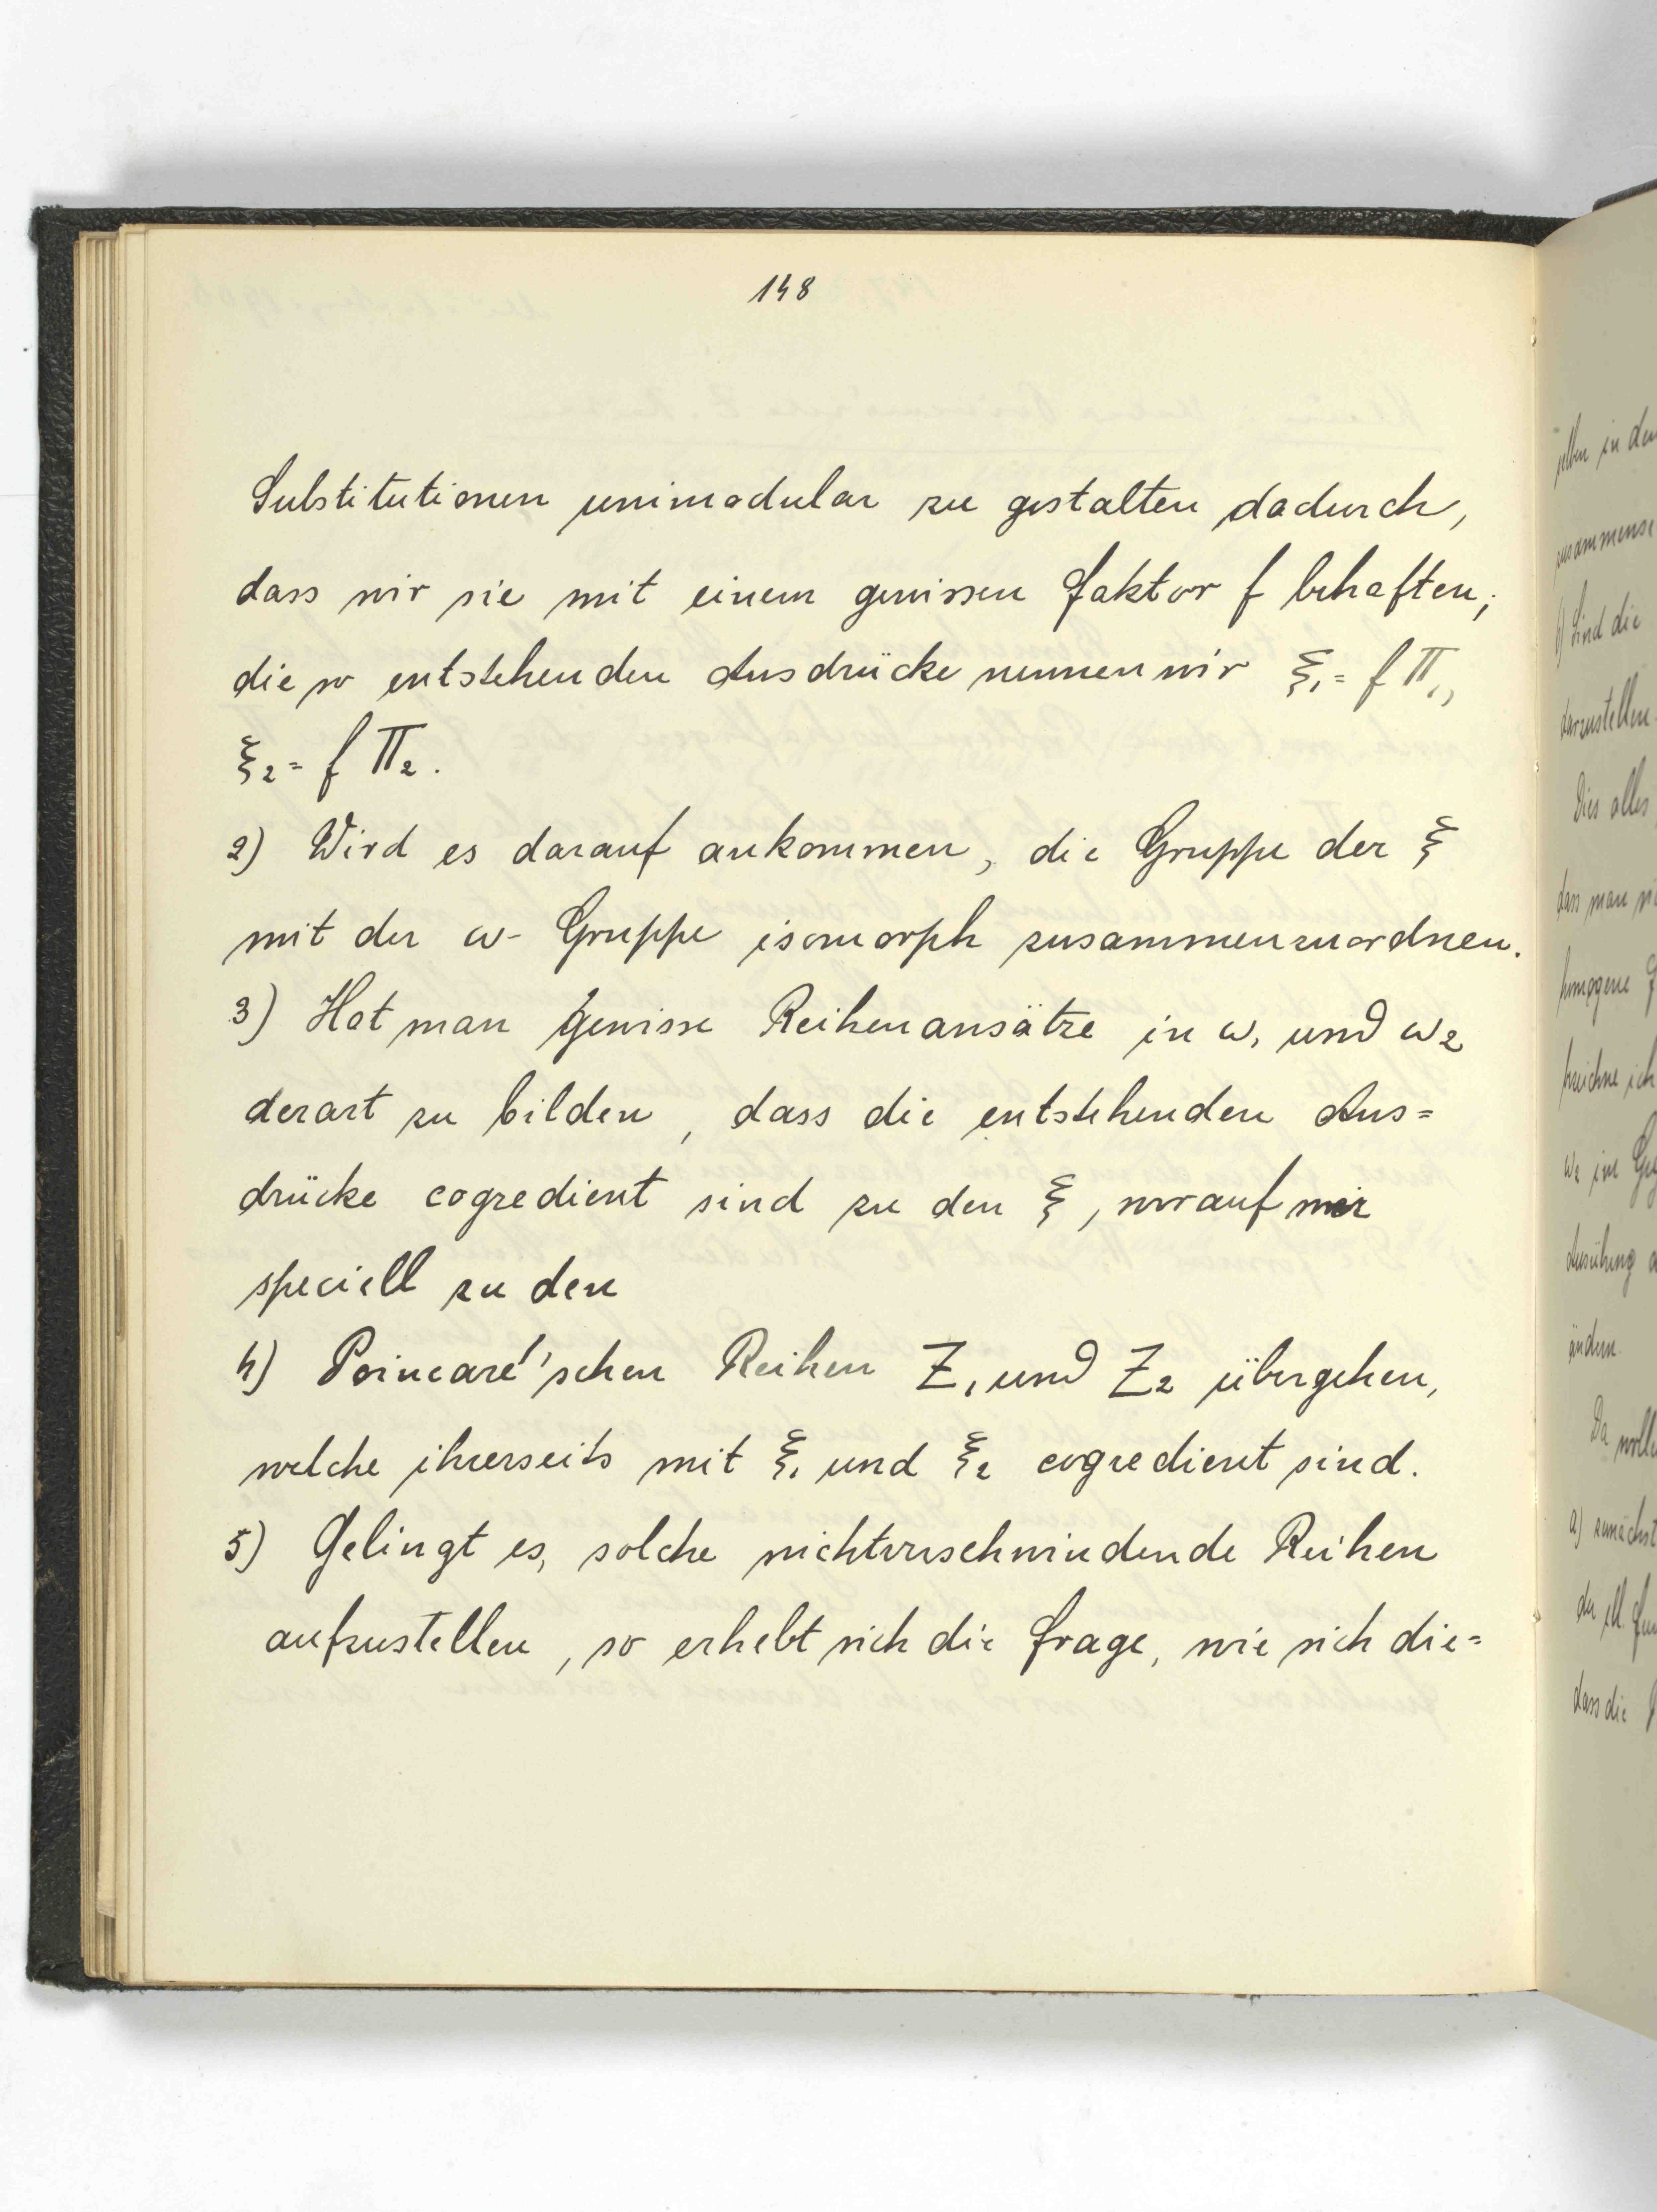 148
Substitutionen unimodular zu gestalten dadurch,
dass wir sie mit einem gewissen Faktor f behaften;
die so entstehenden Ausdrücke nennen wir ξ₁ = f Π₁,
ξ₂ = f Π₂.
2) Wird es darauf ankommen, die Gruppe der ξ
mit der ω-Gruppe isomorph zusammenzuordnen.
3) Hat man gewisse Reihenansätze in ω₁ und ω₂
derart zu bilden, dass die entstehenden Aus=
drücke cogredient sind zu den ξ, worauf wir
speciell zu den
4) Poincaré'schen Reihen Z₁ und Z₂ übergehen,
welche ihrerseits mit ξ₁ und ξ₂ cogredient sind.
5) Gelingt es, solche nichtverschwindende Reihen
aufzustellen, so erhebt sich die Frage, wie sich die=
selben in den
zusammense
6) Sind die
darzustellen.
Dies alles
dass man
homogene
bezeichne ich
ω₂ im
Ausübung
ändern.
Da wolle
a) zunächst
der ell. Fun
dass die